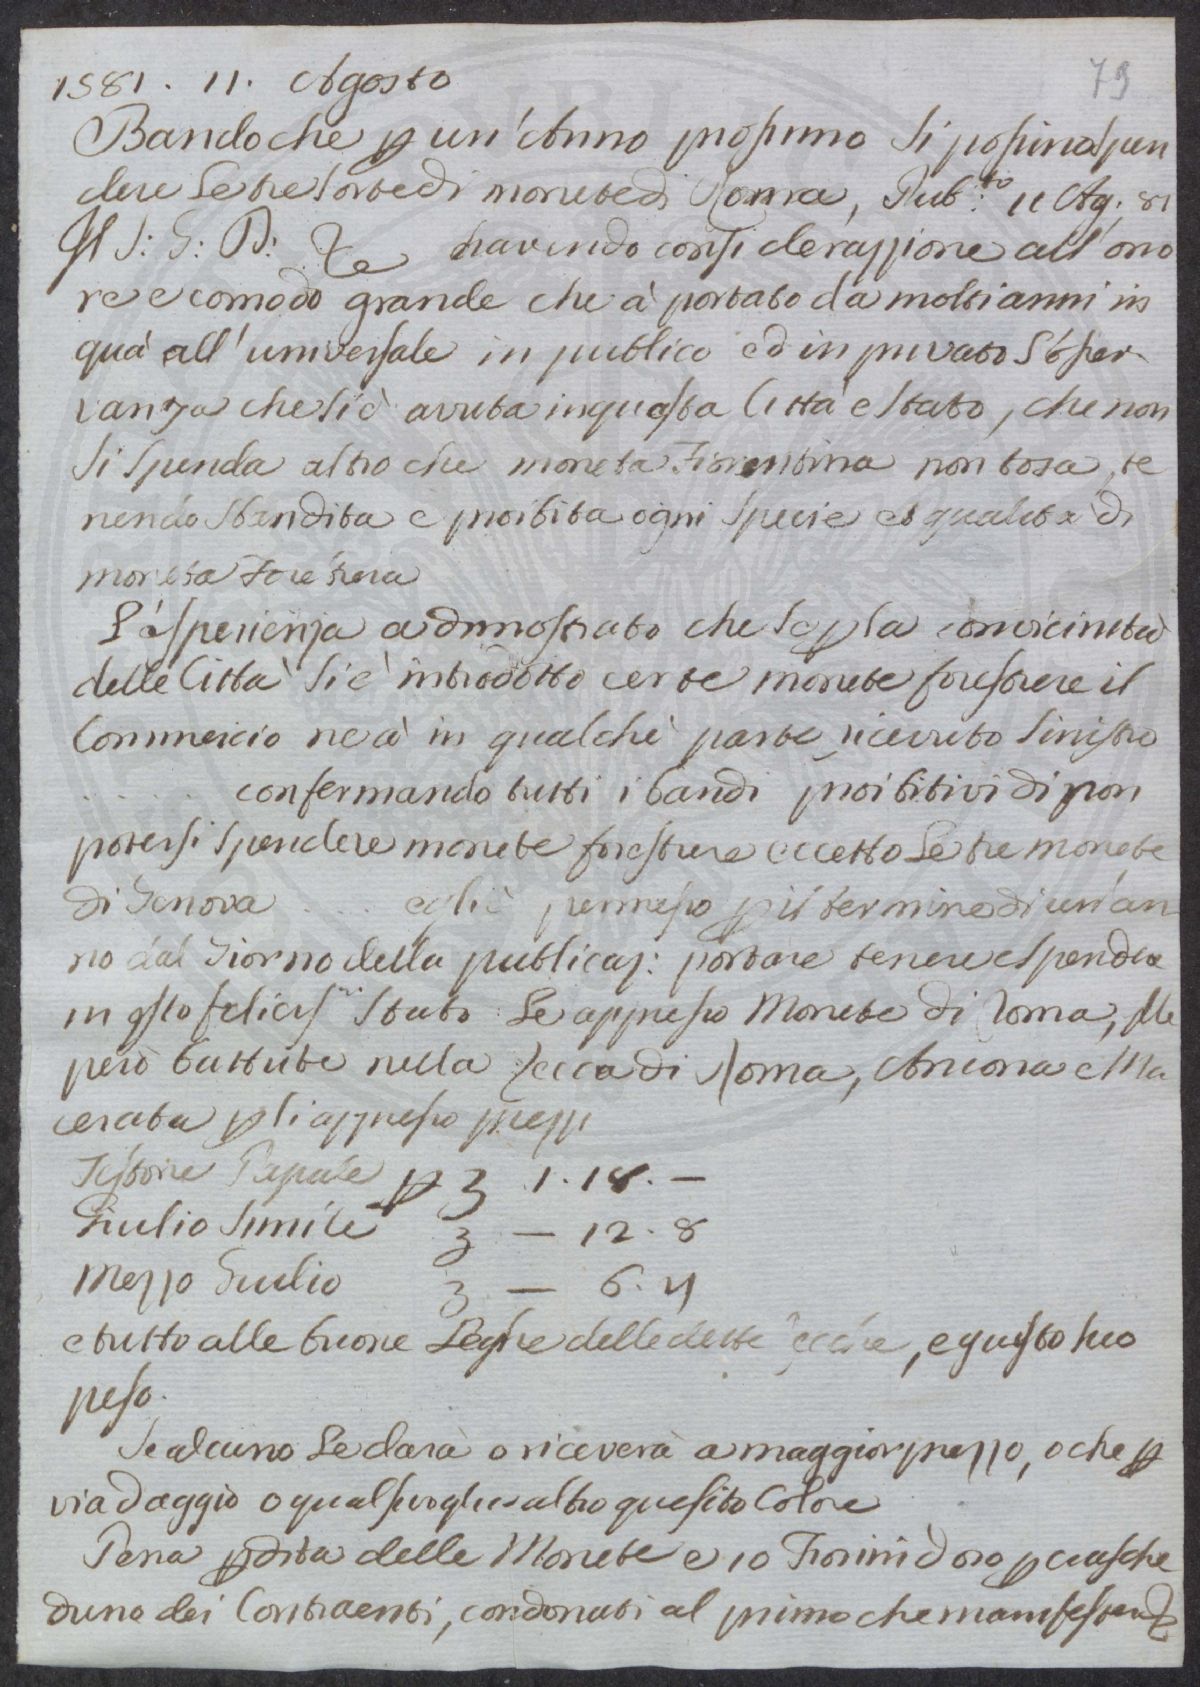 79
1581. 11. Agosto
Bando che p un'Anno prossimo si possino spen
dere le tre sorte di monete di Roma, Pub:to 11 Ag. 81
Il S: G: D: havendo considerazzione all'ono
re e comodo grande che à portato da molti anni in
quà all'universale in publico ed in privato l'osser
vanza che si è avuta in questa Città e Stato, che non
si spenda altro che moneta Fiorentina non tosa, te
nendo sbandita e proibita ogni specie et qualità di
moneta Forestiera
L'esperienza a dimostrato che se p la convicinità
delle Città si è introdotto certe monete forestiere il
Commercio ne à in qualche parte ricevuto sinistro
. . . . . . confermando tutti i bandi proibitivi di non
potersi spendere monete forestiere eccetto le tre monete
di Genova . . . . egli è permesso p il termine di un'an
no dal Giorno della publicaz: portare tenere e spendere
in qsto felicis.o Stato le appresso Monete di Roma, 
però battute nella Zecca di Roma, Ancona e Ma
cerata p li appresso prezzi
Testone Papale p 3 1. 18. —
Giulio simile 3 — 12. 8
Mezzo Giulio 3 — 6. 4
e tutto alle buone Leghe delle dette Zecche, e giusto suo
peso.
Se alcuno le darà o riceverà a maggior prezzo, o che p
via d'aggio o qualsivoglia altro quesito Colore
Pena pdita delle Monete e 10 Fiorini d'oro p ciasche
duno dei Contraenti, condonati al primo che manifesterà